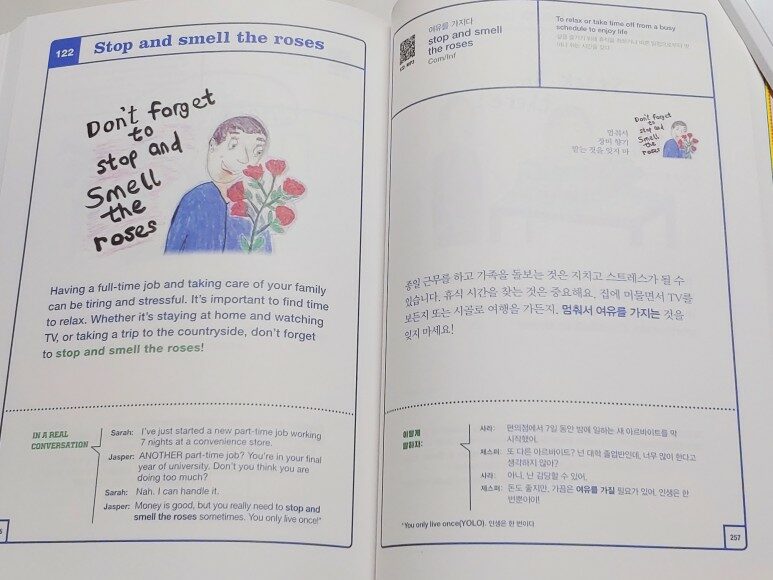 122
Stop and smell the roses
Don't forget
to
stop and
smell
the
roses
Having a full-time job and taking care of your family
can be tiring and stressful. It's important to find time
to relax. Whether it's staying at home and watching
TV, or taking a trip to the countryside, don't forget
to stop and smell the roses!
IN A REAL
CONVERSATION
Sarah: I've just started a new part-time job working
7 nights at a convenience store.
Jasper: ANOTHER part-time job? You're in your final
year of university. Don't you think you are
doing too much?
Sarah: Nah. I can handle it.
Jasper: Money is good, but you really need to stop and
smell the roses sometimes. You only live once!*
여유를 가지다
stop and smell
the roses
Com/Inf
To relax or take time off from a busy
schedule to enjoy life
멈춰서
장미 향기
맡는 것을 잊지 마
Don't forget
to
stop and
Smell
the
roses
종일 근무를 하고 가족을 돌보는 것은 지치고 스트레스가 될 수
있습니다. 휴식 시간을 찾는 것은 중요해요. 집에 머물면서 TV를
보든지 또는 시골로 여행을 가든지. 멈춰서 여유를 가지는 것을
잊지 마세요!
이렇게
말하자:
사라: 편의점에서 7일 동안 밤에 일하는 새 아르바이트를 막
시작했어.
제스퍼: 또 다른 아르바이트? 넌 대학 졸업반인데, 너무 많이 한다고
생각하지 않아?
사라: 아니, 난 감당할 수 있어.
제스퍼: 돈도 좋지만, 가끔은 여유를 가질 필요가 있어. 인생은 한
번뿐이야!
*You only live once(YOLO). 인생은 한 번이다
257